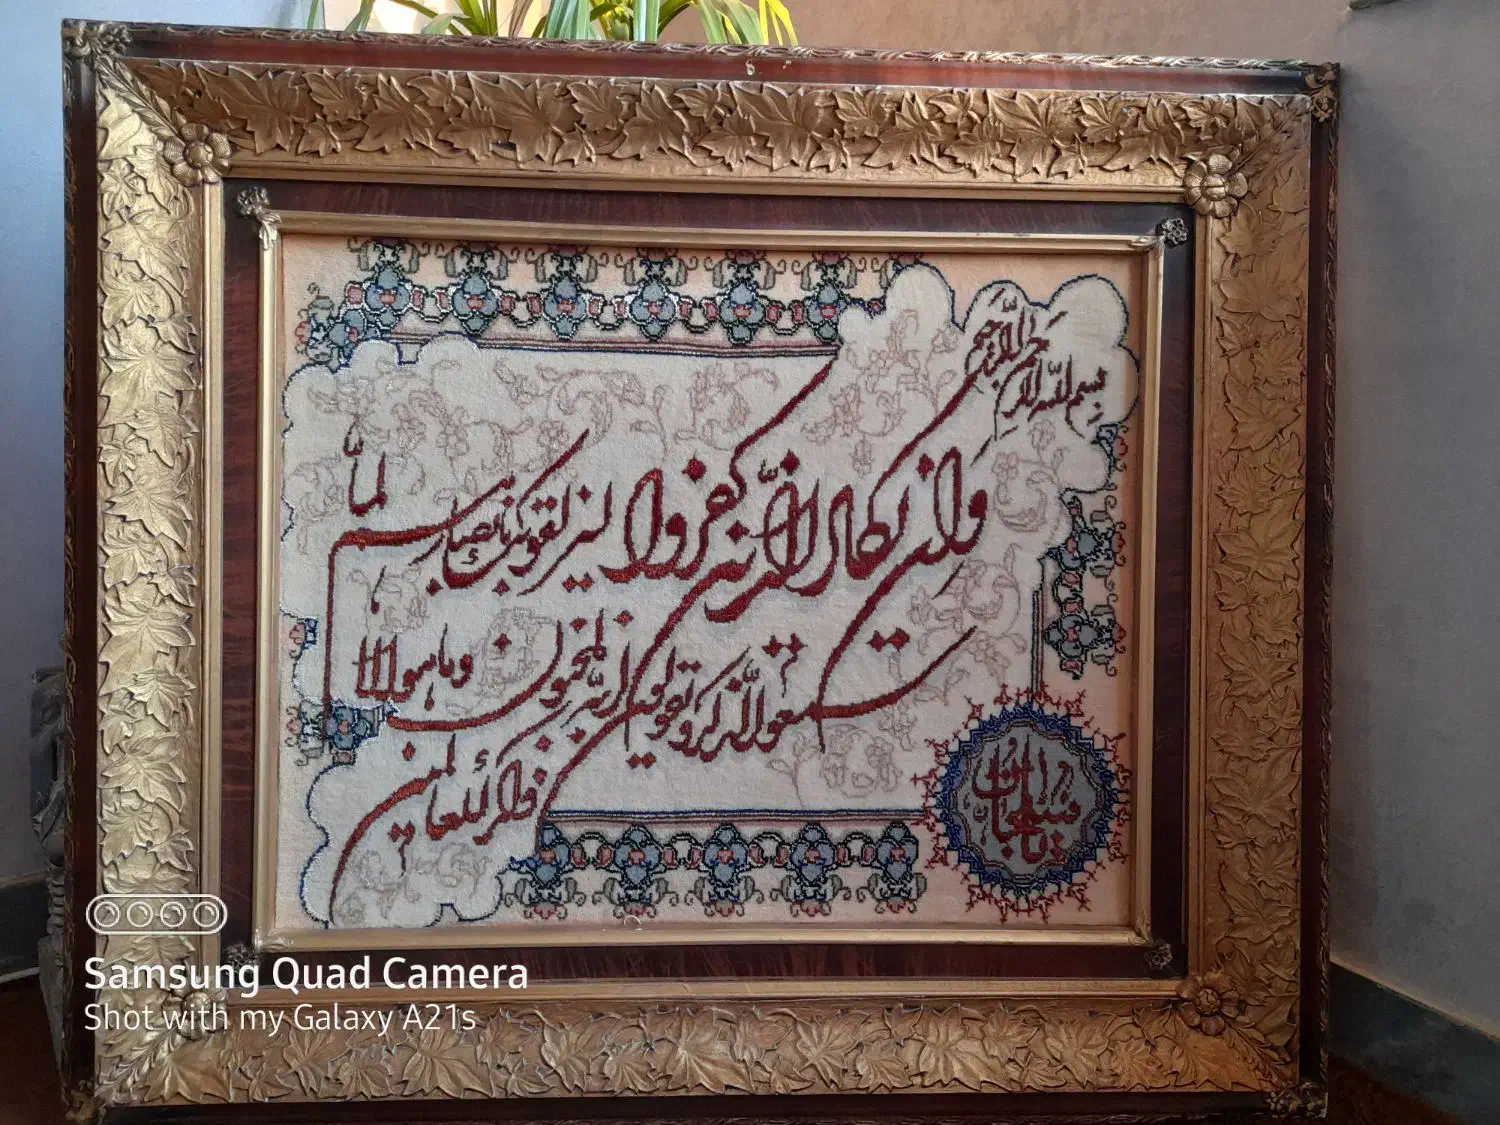 بسم الله الرحمن الرحیم
وان یکاد الذین کفروا لیزلقونک بابصارهم لما
سمعوا الذکر و یقولون انه لمجنون وما هو الا
ذکر للعالمین
Samsung Quad Camera
Shot with my Galaxy A21s